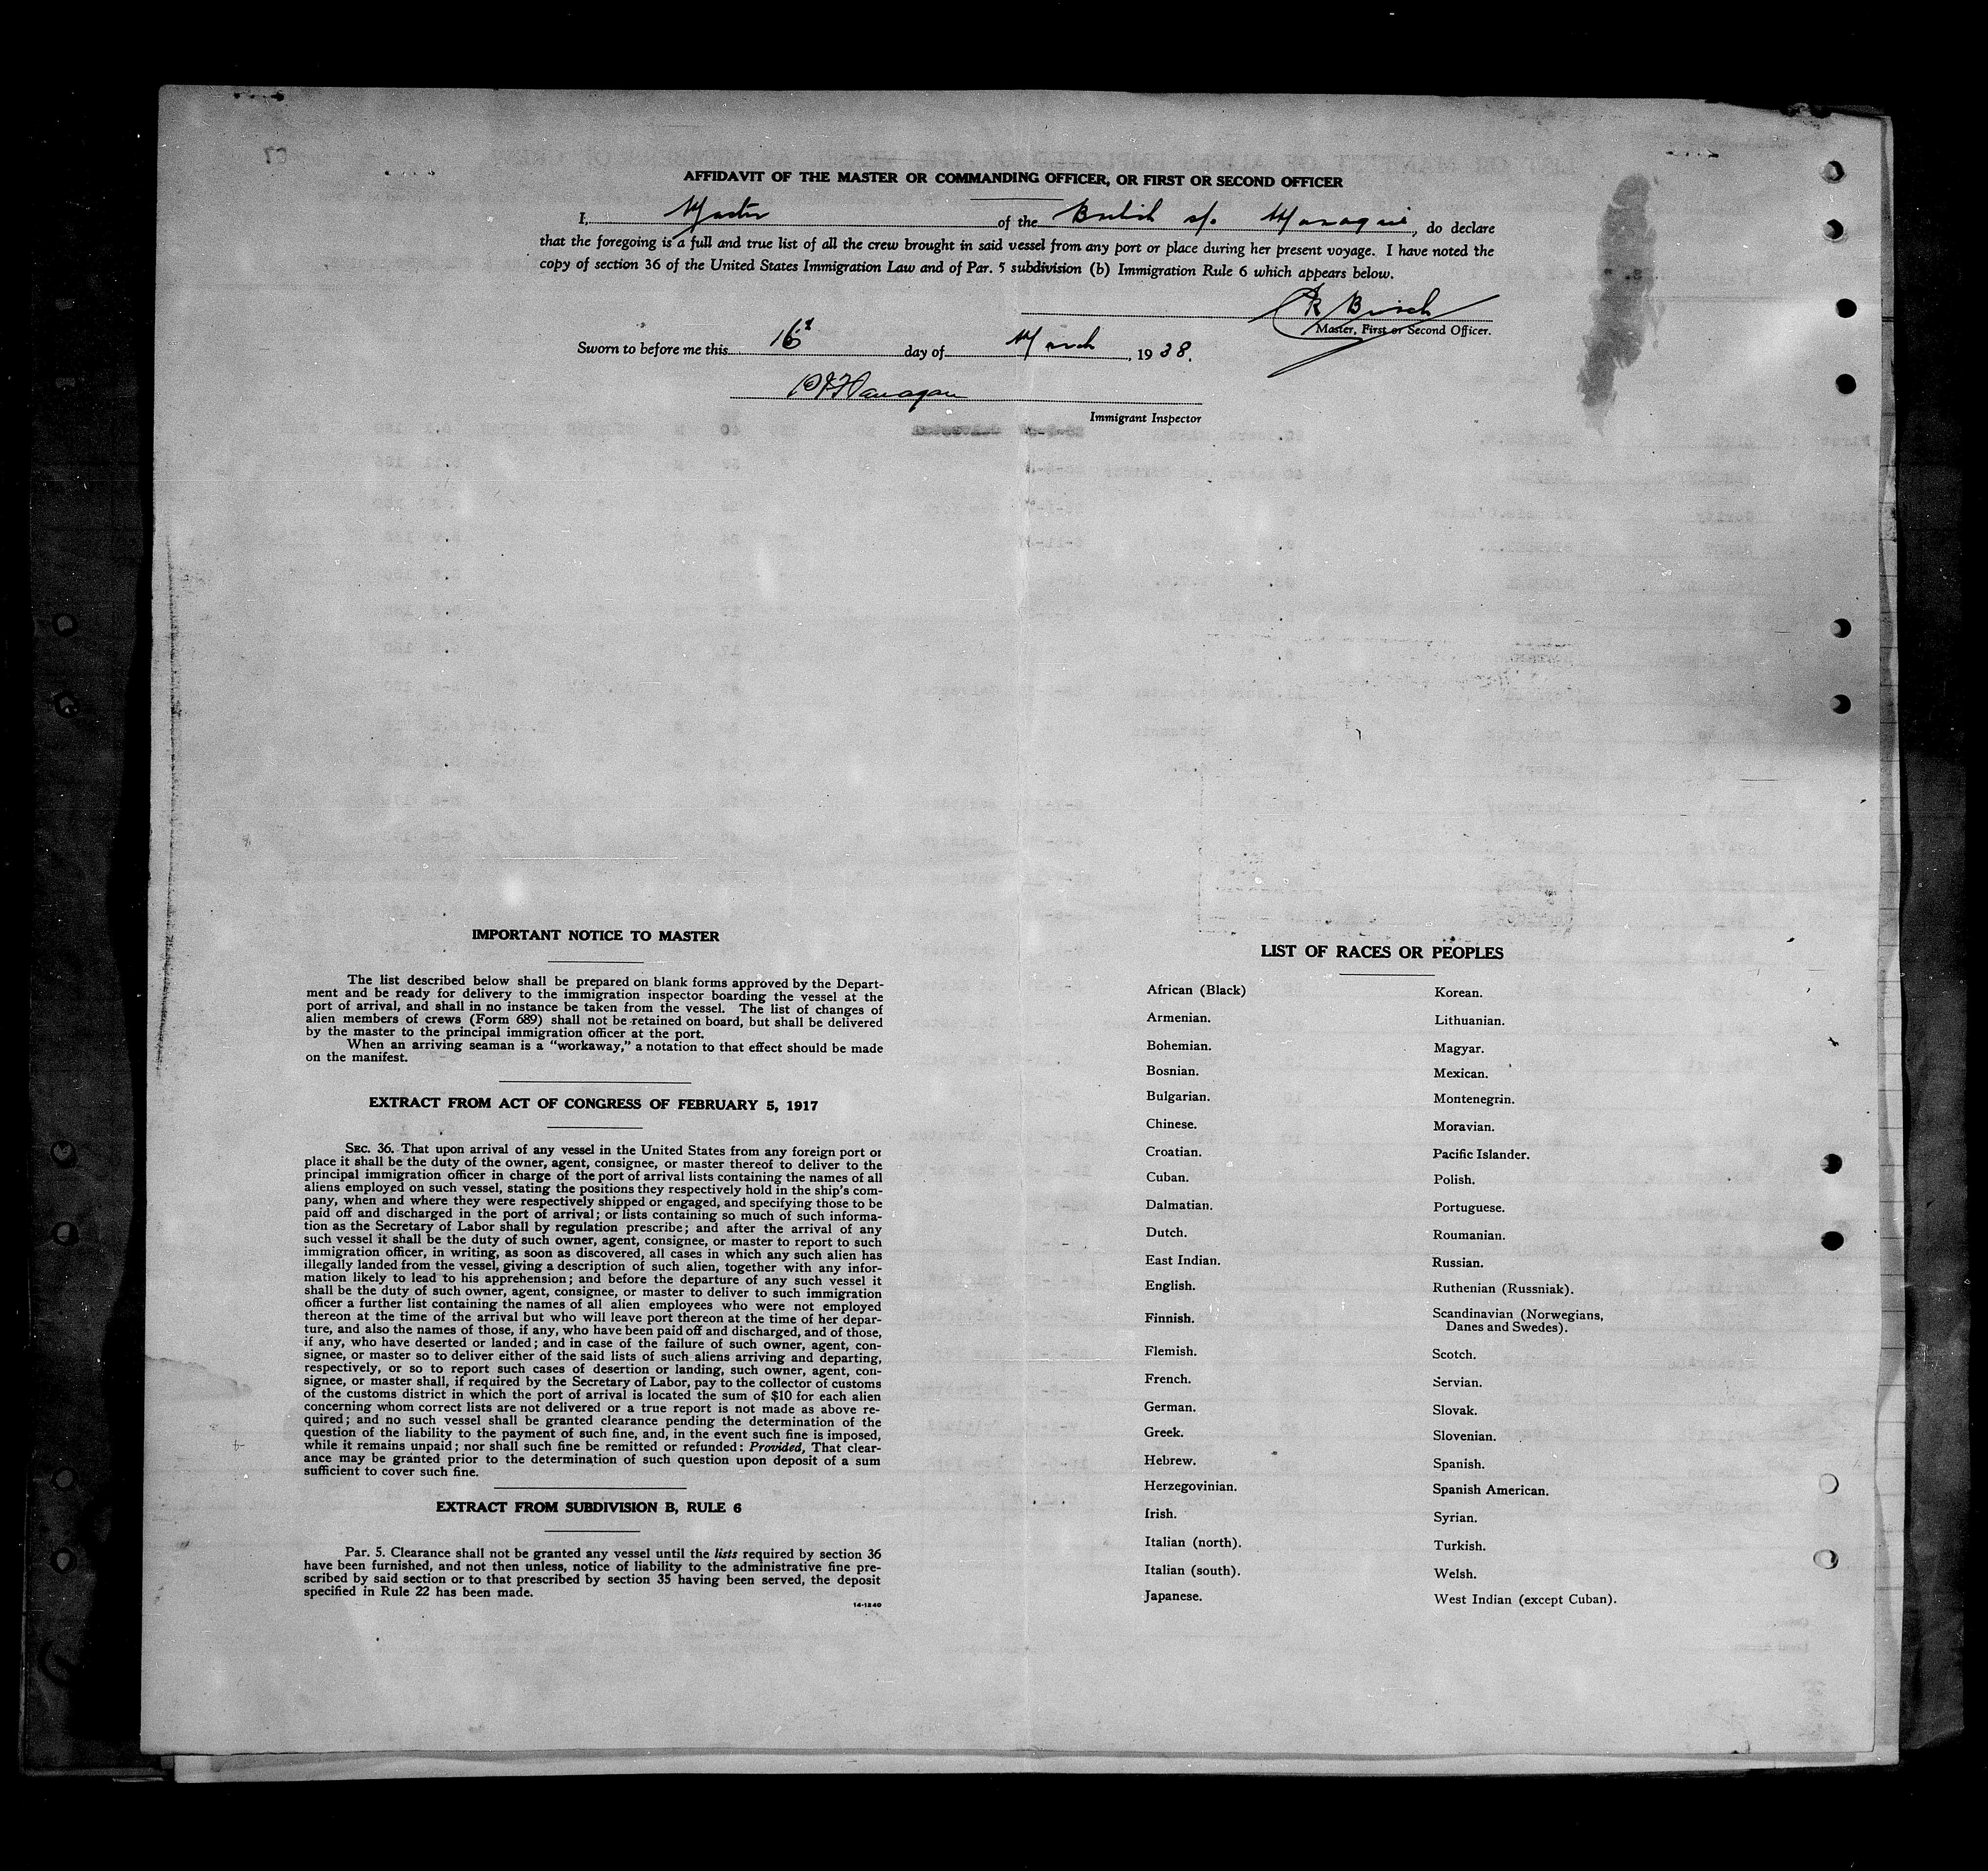 AFFIDAVIT OF THE MASTER OR COMMANDING OFFICER, OR FIRST OR SECOND OFFICER
I, Master of the British s/s Managui, do declare
that the foregoing is a full and true list of all the crew brought in said vessel from any port or place during her present voyage. I have noted the
copy of section 36 of the United States Immigration Law and of Par. 5 subdivision (b) Immigration Rule 6 which appears below.
Master, First or Second Officer.
Sworn to before me this 16 day of March, 1938.
Immigrant Inspector
IMPORTANT NOTICE TO MASTER
The list described below shall be prepared on blank forms approved by the Depart-
ment and be ready for delivery to the immigration inspector boarding the vessel at the
port of arrival, and shall in no instance be taken from the vessel. The list of changes of
alien members of crews (Form 689) shall not be retained on board, but shall be delivered
by the master to the principal immigration officer at the port.
When an arriving seaman is a "workaway," a notation to that effect should be made
on the manifest.
EXTRACT FROM ACT OF CONGRESS OF FEBRUARY 5, 1917
SEC. 36. That upon arrival of any vessel in the United States from any foreign port or
place it shall be the duty of the owner, agent, consignee, or master thereof to deliver to the
principal immigration officer in charge of the port of arrival lists containing the names of all
aliens employed on such vessel, stating the positions they respectively hold in the ship's com-
pany, when and where they were respectively shipped or engaged, and specifying those to be
paid off and discharged in the port of arrival; or lists containing so much of such informa-
tion as the Secretary of Labor shall by regulation prescribe; and after the arrival of any
such vessel it shall be the duty of such owner, agent, consignee, or master to report to such
immigration officer, in writing, as soon as discovered, all cases in which any such alien has
illegally landed from the vessel, giving a description of such alien, together with any infor-
mation likely to lead to his apprehension; and before the departure of any such vessel it
shall be the duty of such owner, agent, consignee, or master to deliver to such immigration
officer a further list containing the names of all alien employees who were not employed
thereon at the time of the arrival but who will leave port thereon at the time of her depar-
ture, and also the names of those, if any, who have been paid off and discharged, and of those,
if any, who have deserted or landed; and in case of the failure of such owner, agent, con-
signee, or master so to deliver either of the said lists of such aliens arriving and departing,
respectively, or so to report such cases of desertion or landing, such owner, agent, con-
signee, or master shall, if required by the Secretary of Labor, pay to the collector of customs
of the customs district in which the port of arrival is located the sum of $10 for each alien
concerning whom correct lists are not delivered or a true report is not made as above re-
quired; and no such vessel shall be granted clearance pending the determination of the
question of the liability to the payment of such fine, and, in the event such fine is imposed,
while it remains unpaid; nor shall such fine be remitted or refunded: Provided, That clear-
ance may be granted prior to the determination of such question upon deposit of a sum
sufficient to cover such fine.
EXTRACT FROM SUBDIVISION B, RULE 6
Par. 5. Clearance shall not be granted any vessel until the lists required by section 36
have been furnished, and not then unless, notice of liability to the administrative fine pre-
scribed by said section or to that prescribed by section 35 having been served, the deposit
specified in Rule 22 has been made.
14-1240
LIST OF RACES OR PEOPLES
African (Black)
Armenian.
Bohemian.
Bosnian.
Bulgarian.
Chinese.
Croatian.
Cuban.
Dalmatian.
Dutch.
East Indian.
English.
Finnish.
Flemish.
French.
German.
Greek.
Hebrew.
Herzegovinian.
Irish.
Italian (north).
Italian (south).
Japanese.
Korean.
Lithuanian.
Magyar.
Mexican.
Montenegrin.
Moravian.
Pacific Islander.
Polish.
Portuguese.
Roumanian.
Russian.
Ruthenian (Russniak).
Scandinavian (Norwegians,
Danes and Swedes).
Scotch.
Servian.
Slovak.
Slovenian.
Spanish.
Spanish American.
Syrian.
Turkish.
Welsh.
West Indian (except Cuban).